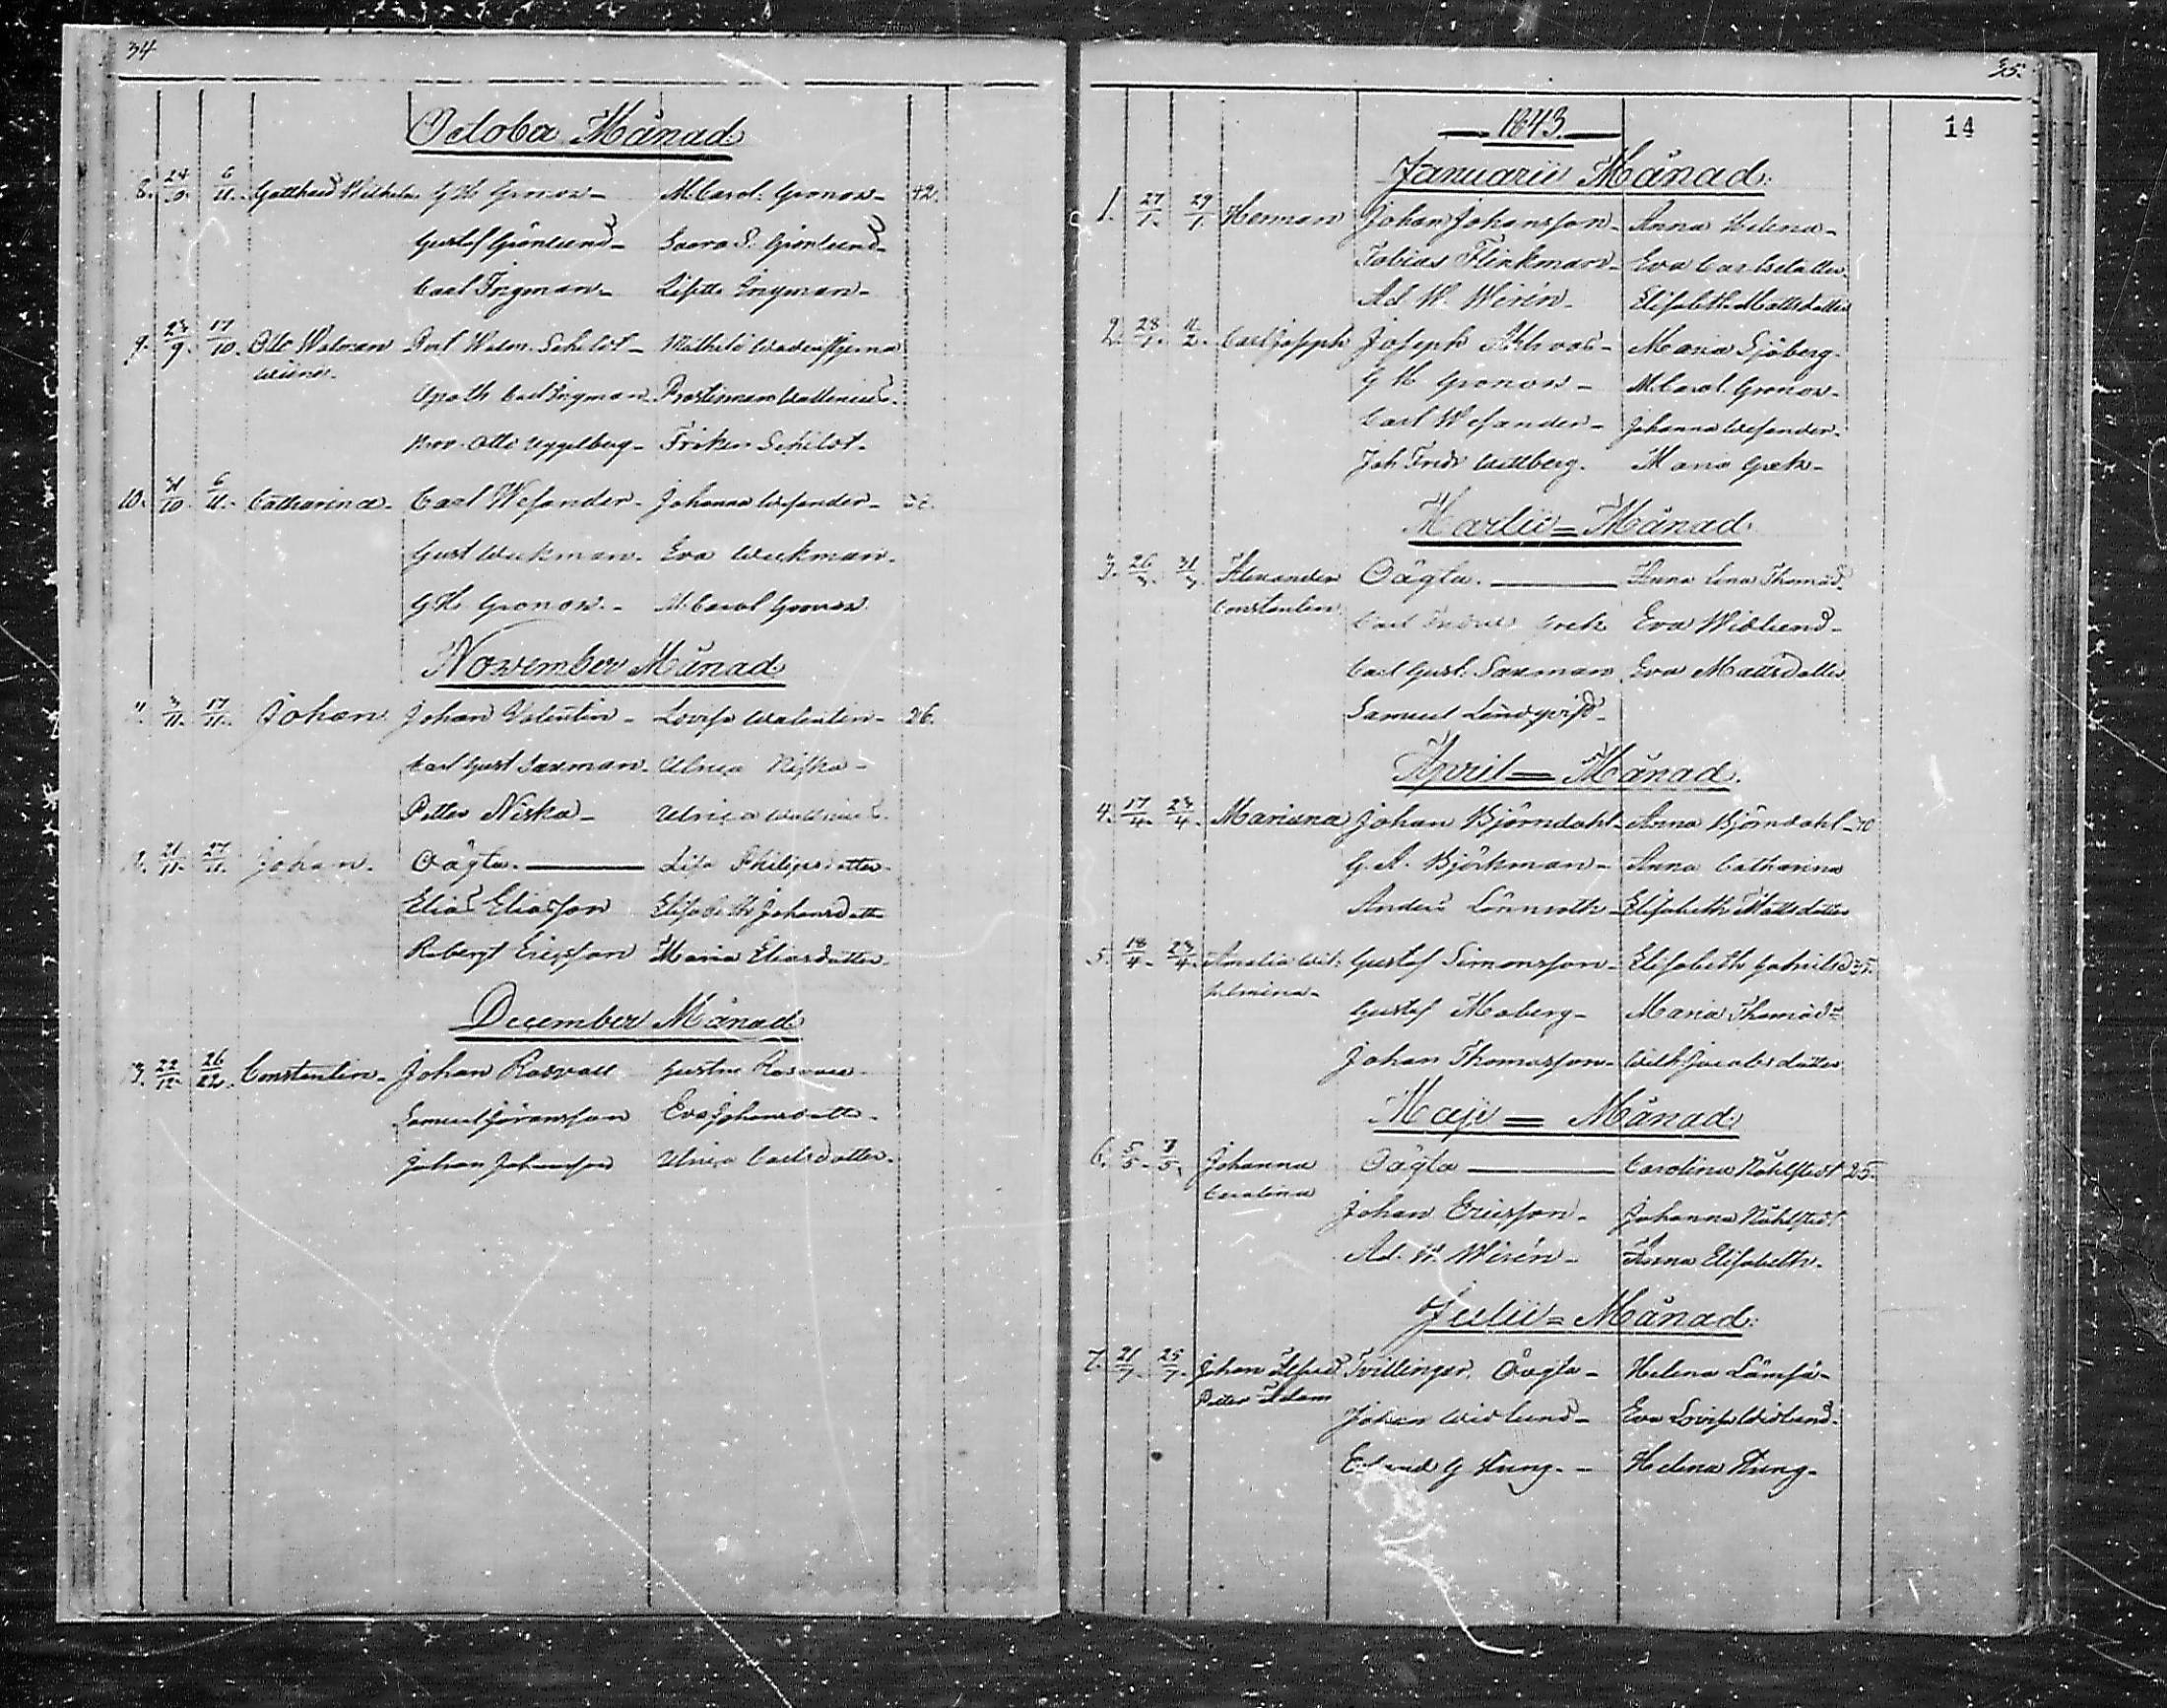 34
October Månad
8. 24/9. 6/11. Gotthard Wilhelm G H Gronow - M. Carol. Gronow - 42.
Gustaf Grönlund - Saara S. Grönlund -
Carl Ingman - Lisette Ingman -
9. 23/9. 17/10. Otto Walmar Schildt - Mathilda
Carl Ingman - Prostinnan Wallenius.
Otto Uggelberg - Fröken Schildt -
10. 31/10. 6/11. Catharina - Carl Wesander - Johanna Wesander -
Gust Weckman - Eva Weckman -
G H Gronow - M. Carol Gronow
November Månad
11. 3/11. 17/11. Johan Johan Valentin - Lovisa Walentin - 26.
Carl Gust Saxman - Ulrica Niska -
Petter Niska - Ulrica Wallenius
21/11. 27/11. Johan. Oägta. Lisa Philipsdotter -
Elias Eliasson Elisabeth Johansdotter
Robergt Ericsson Maria Eliasdotter -
December Månad
13. 22/12. 26/12. Constantin - Johan Rosvall Gustava Rosvall -
Samuel Göransson Eva Johansdotter -
Johan Johansson Ulrica Carlsdotter -
35.
14
1843.
Januarii Månad.
1. 27/1. 29/1. Herman Johan Johansson - Anna Helena -
Tobias Flinkman - Eva Carlsdotter
Ad. W. Wirén - Elisabeth Mattsdotter
2. 28/1. 11/2. Carl Joseph Joseph Ahlroos - Maria Sjöberg -
G H Gronow - M. Carol. Gronow -
Carl Wesander - Johanna Wesander -
Joh Fredr Wittberg. Maria Grek -
Martii = Månad
3. 26/3. 31/3. Alexander Oägta. Anna Lena Thomasd.
Constantin Carl Fredric Grek Eva Widlund -
Carl Gust. Saxman Eva Mattsdotter
Samuel Lindqvist -
April = Månad.
4. 17/4. 23/4. Mariana Johan Björndahl - Anna Björndahl -
G. A. Björkman - Anna Catharina
Anders Lönnroth - Elisabeth Mattsdotter
5. 18/4. 23/4. Amalia Wil: Gustaf Simonsson - Elisabeth Gabrielsd 35.
helmina - Gustaf Moberg - Maria Thomasdr
Johan Thomasson - Wilh Jacobsdotter
Maji = Månad
6. 5/5. 7/5. Johanna Oägta Carolina Nåhlstedt 25.
Carolina Johan Ericsson - Johanna Nåhlstedt
Ad. W. Wirén - Anna Elisabeth -
Julii = Månad.
7. 21/7. 25/7. Johan Alfred Tvillingar. Oägta - Helena Lämsä -
Petter Adam Johan Widlund - Eva Lovisa Widlund -
G Kung - Helena Kung -